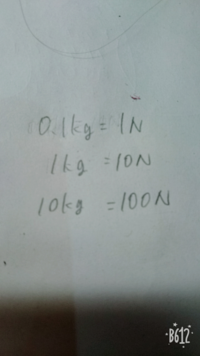 0.1kg = 1N
1kg = 10N
10kg = 100N
B612